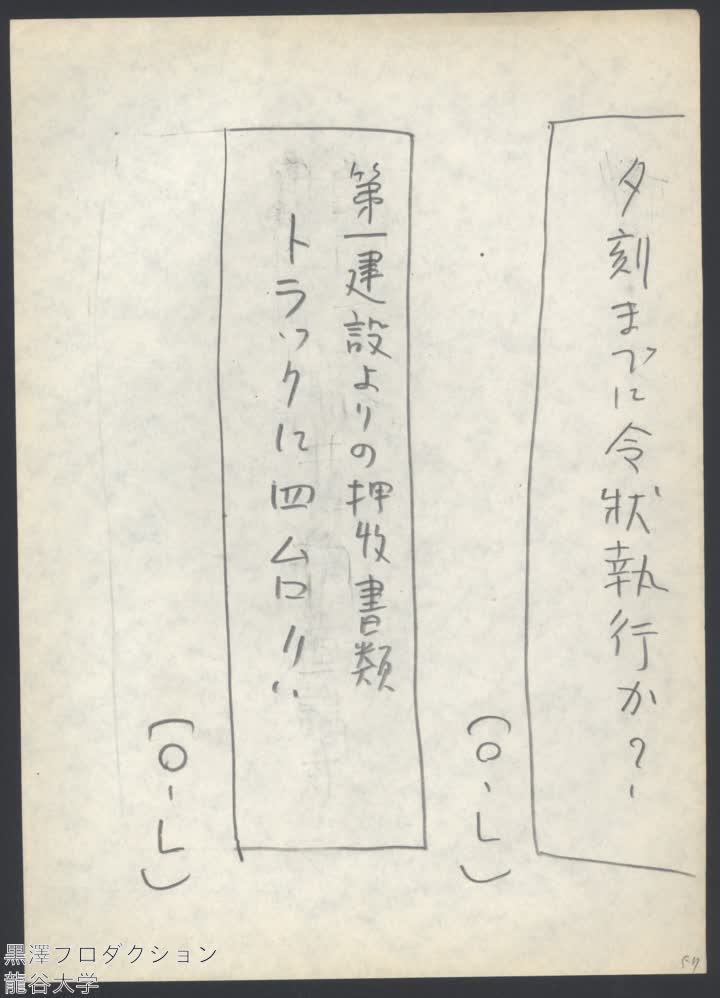 夕刻までに令状執行か?
(O・L)
第一建設よりの押收書類
トラックに四台!!
(O・L)
黒澤プロダクション
龍谷大学